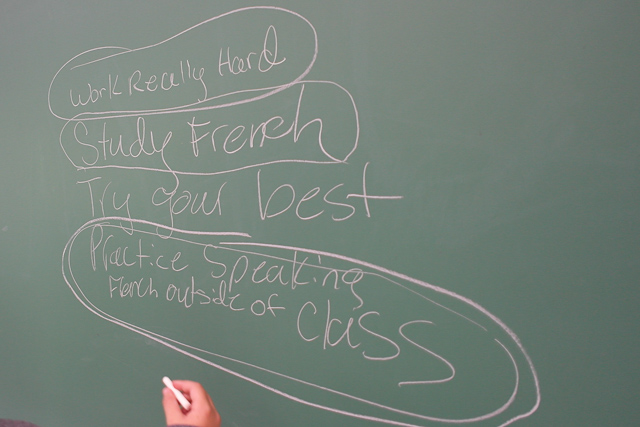 Work Really Hard
Study French
Try your best
Practice Speaking
French outside of
Class